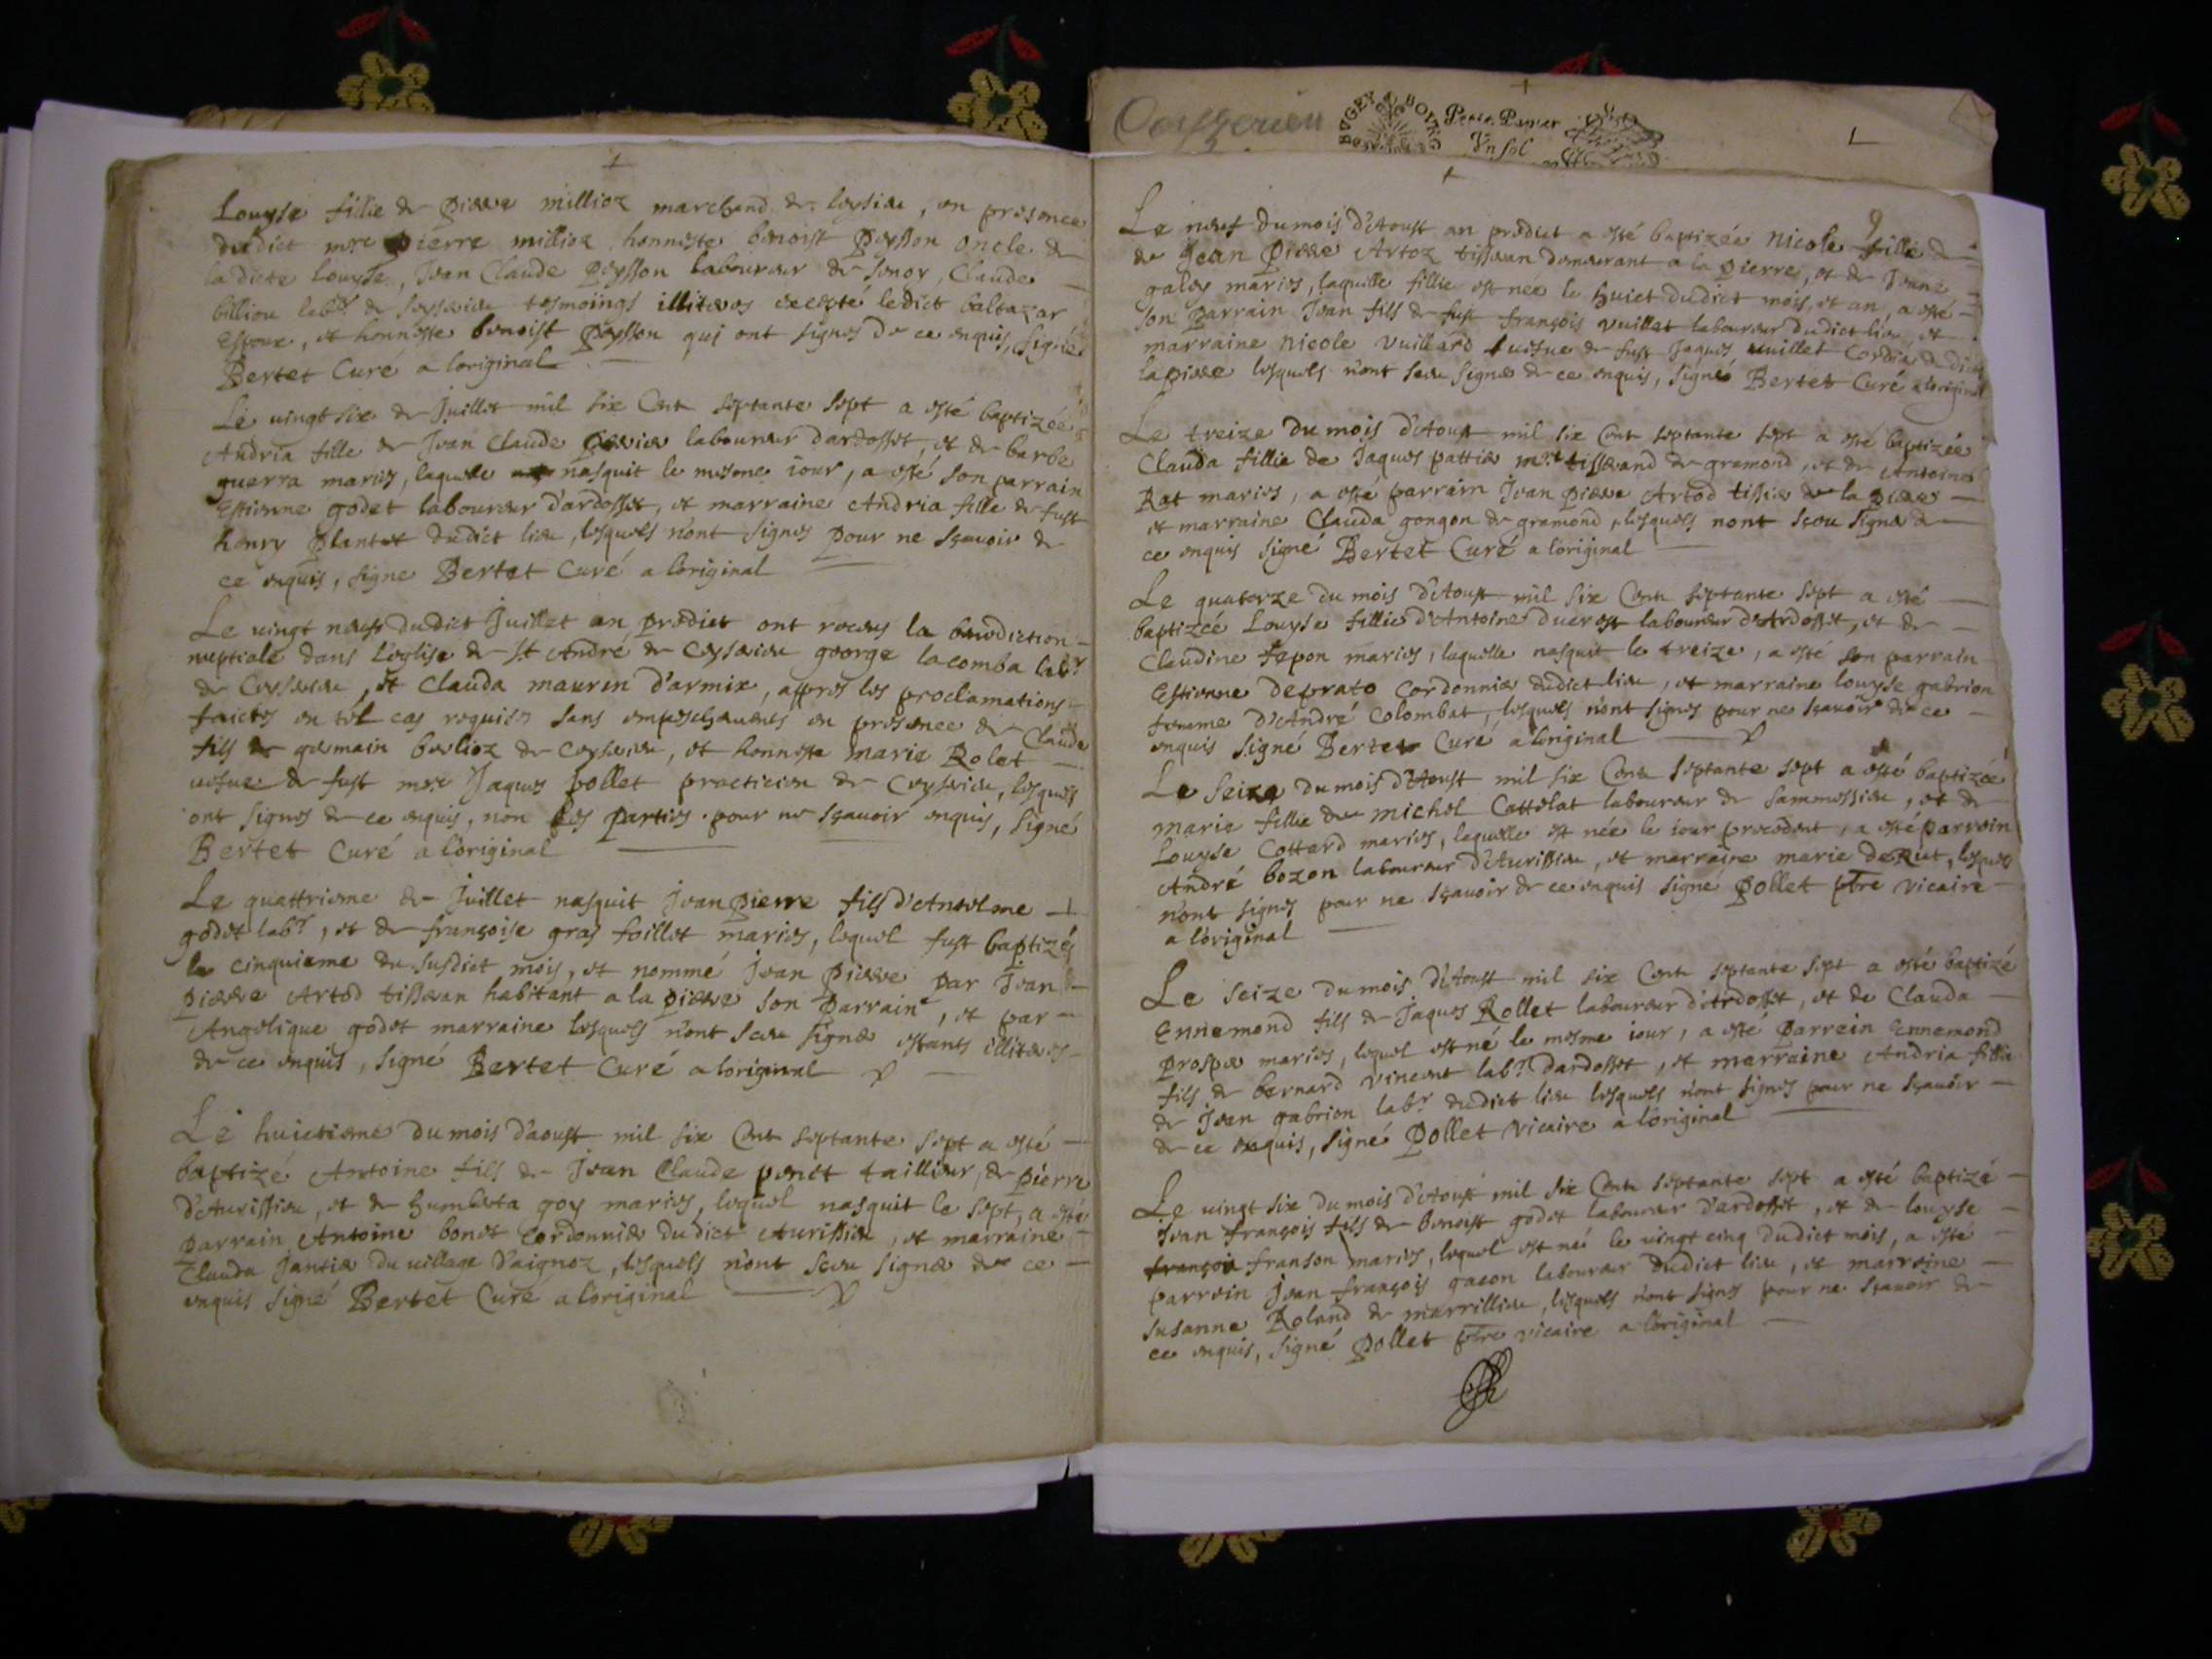 Louyse fillie de Pierre millioz marchand de loysieu, en presence
dudict mre Pierre millioz honneste benoist Peysson oncle de
la dicte louyse, Jean Claude Peysson laboureur de sonoy, Claude
billiou labr de seysérieu tesmoings illiteres excepté ledict baltazar
Espoux, et honneste benoist Peysson qui ont signes de ce enquis, signé
Bertet Curé a loriginal
Le uingt six de Juillet mil six Cent septante sept a esté baptizéé
Andria fille de Jean Claude laboureur dardosset, et de barbe
guerra mariés, laquelle nasquit le mesme iour, a esté son parrain
Estienne godet laboureur d'ardosset, et marraine Andria fille de fust
henry Plantet dudict lieu, lesquels n'ont signes pour ne sçavoir de
ce enquis, signe Bertet Curé a loriginal
Le uingt neuf dudict Juillet an prédict ont receus la benediction
nuptiale dans l'eglise de St André de Ceyserieu george lacomba labr
de Ceyserieu, et Clauda maurin d'armix, appres les proclamations
faictes en tel cas requises sans empeschements en presence de Claude
fils de germain berlioz de Ceyserieu, et honneste marie Rolet
uefue de fust mre Jaques pollet practicien de Ceyserieu, lesquels
ont signes de ce enquis, non les parties pour ne sçavoir enquis, signé
Bertet Curé a l'original
Le quattrieme de Juillet nasquit Jean Pierre fils d'Antelme
godet labr, et de françoise gras foillet mariés, lequel fust baptizés
le cinquieme du susdict mois, et nommé Jean Pierre par Jean
Pierre Artod tisseran habitant a la Pierre son Parrain, et par
Angelique godet marraine lesquels n'ont sceu signer estants illiteres
de ce enquis, signé Bertet Curé a loriginal
Le huictieme du mois d'aoust mil six Cent septante sept a esté
baptizé Antoine fils de Jean Claude ponct tailleur, de pierre
d'Aurissieu, et de humberta goy mariés, lequel nasquit le sept, a esté
Parrain Antoine bonet Cordonnier dudict Aurissieu, et marraine
Clauda Jantier du uillage d'aignoz, lesquels n'ont sceu signer de ce
enquis signé Bertet Curé a loriginal
Ceyserieu
BVGEY
Petit Papier
Vn sol
9
Le neuf du mois d'Aoust an prédict a esté baptizée Nicole fillie de
de Jean Pierre Artoz tisseran demeurant a la Pierre, et de Jeane
galey mariés, laquelle fillie est née le huict dudict mois, et an, a esté
son Parrain Jean fils de fust françois Vuillet laboureur dudict lieu, et
marraine Nicole Vuillerd uefue de fust Jaques uuillet Cordier de dicte
la Pierre lesquels n'ont sceu signer de ce enquis, signés Bertet Curé a loriginal
Le treize du mois d'Aoust mil six Cent septante sept a esté baptizée
Clauda fillie de Jaques pattier mre tisserand de gramond, et de Antoine
Rat mariés, a esté parrain Jean Pierre Artod tissier de la Pierre
et marraine Clauda gongon de gramond, lesquels nont sçeu signer de
ce enquis signé Bertet Curé a l'original
Le quatorze du mois d'Aoust mil six Cent septante sept a esté
baptizée Louyse fillie d'Antoine ducrost laboureur d'Ardosset, et de
Claudine tepon mariés, laquelle nasquit le treize, a esté son parrain
Estienne Deprato Cordonnier dudict lieu, et marraine louyse gabrion
femme d'André Colombat, lesquels n'ont signes pour ne sçavoir de ce
enquis signé Bertet Curé a loriginal
Le seize du mois d'Aoust mil six Cent septante sept a esté baptizée
marie fillie de michel Cattelat laboureur de sammessieu, et de
Louyse Cottard mariés, laquelle est née le iour precedent, a esté parrein
André bozon laboureur d'Aurissieu, et marraine marie deRiet, lesquels
n'ont signes pour ne sçavoir de ce enquis signé Pollet ptre vicaire
a l'original
Le seize du mois d'Aoust mil six Cent septante sept a esté baptizé
Ennemond fils de Jaques Rollet laboureur d'Ardosset, et de Clauda
prosper mariés, lequel est né le mesme iour, a esté Parrein Ennemond
fils de bernard vincent labr dardosset, et marraine Andria fillie
de Jean gabrion labr dudict lieu lesquels n'ont signes pour ne sçavoir
de ce enquis, signé Pollet vicaire a l'original
Le uingt six du mois d'Aoust mil six Cent septante sept a esté baptizé
Jean françois fils de benoist godet laboureur d'ardosset, et de louyse
françois franson mariés, lequel est né le uingt cinq dudict mois, a esté
parrein Jean françois gacon laboureur dudict lieu, et marreine
susanne Roland de marrillieu, lesquels n'ont signes pour ne sçavoir de
ce enquis, signé Pollet ptre vicaire a l'original